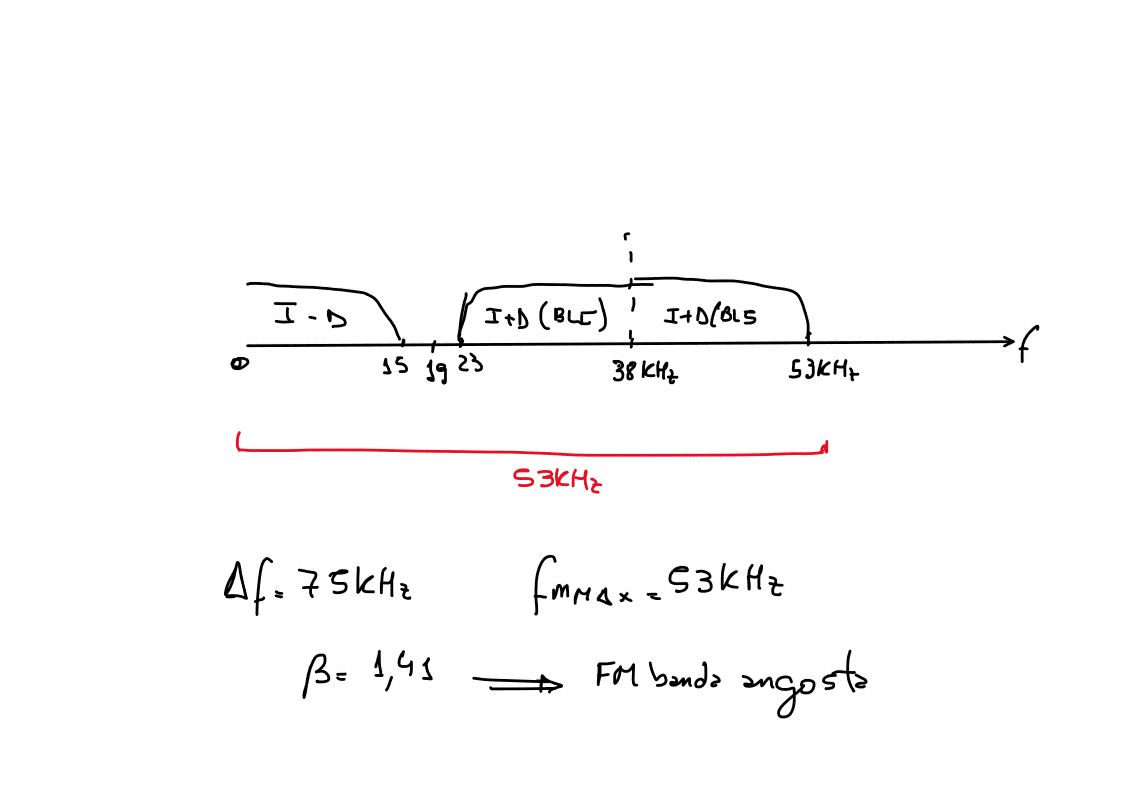 I - D I+D (BLI) I+D(BLS
0 15 19 23 38 KHz 53KHz f
53KHz
Δf = 75KHz fmMAX = 53KHz
β = 1,41 ⟹ FM banda angosta